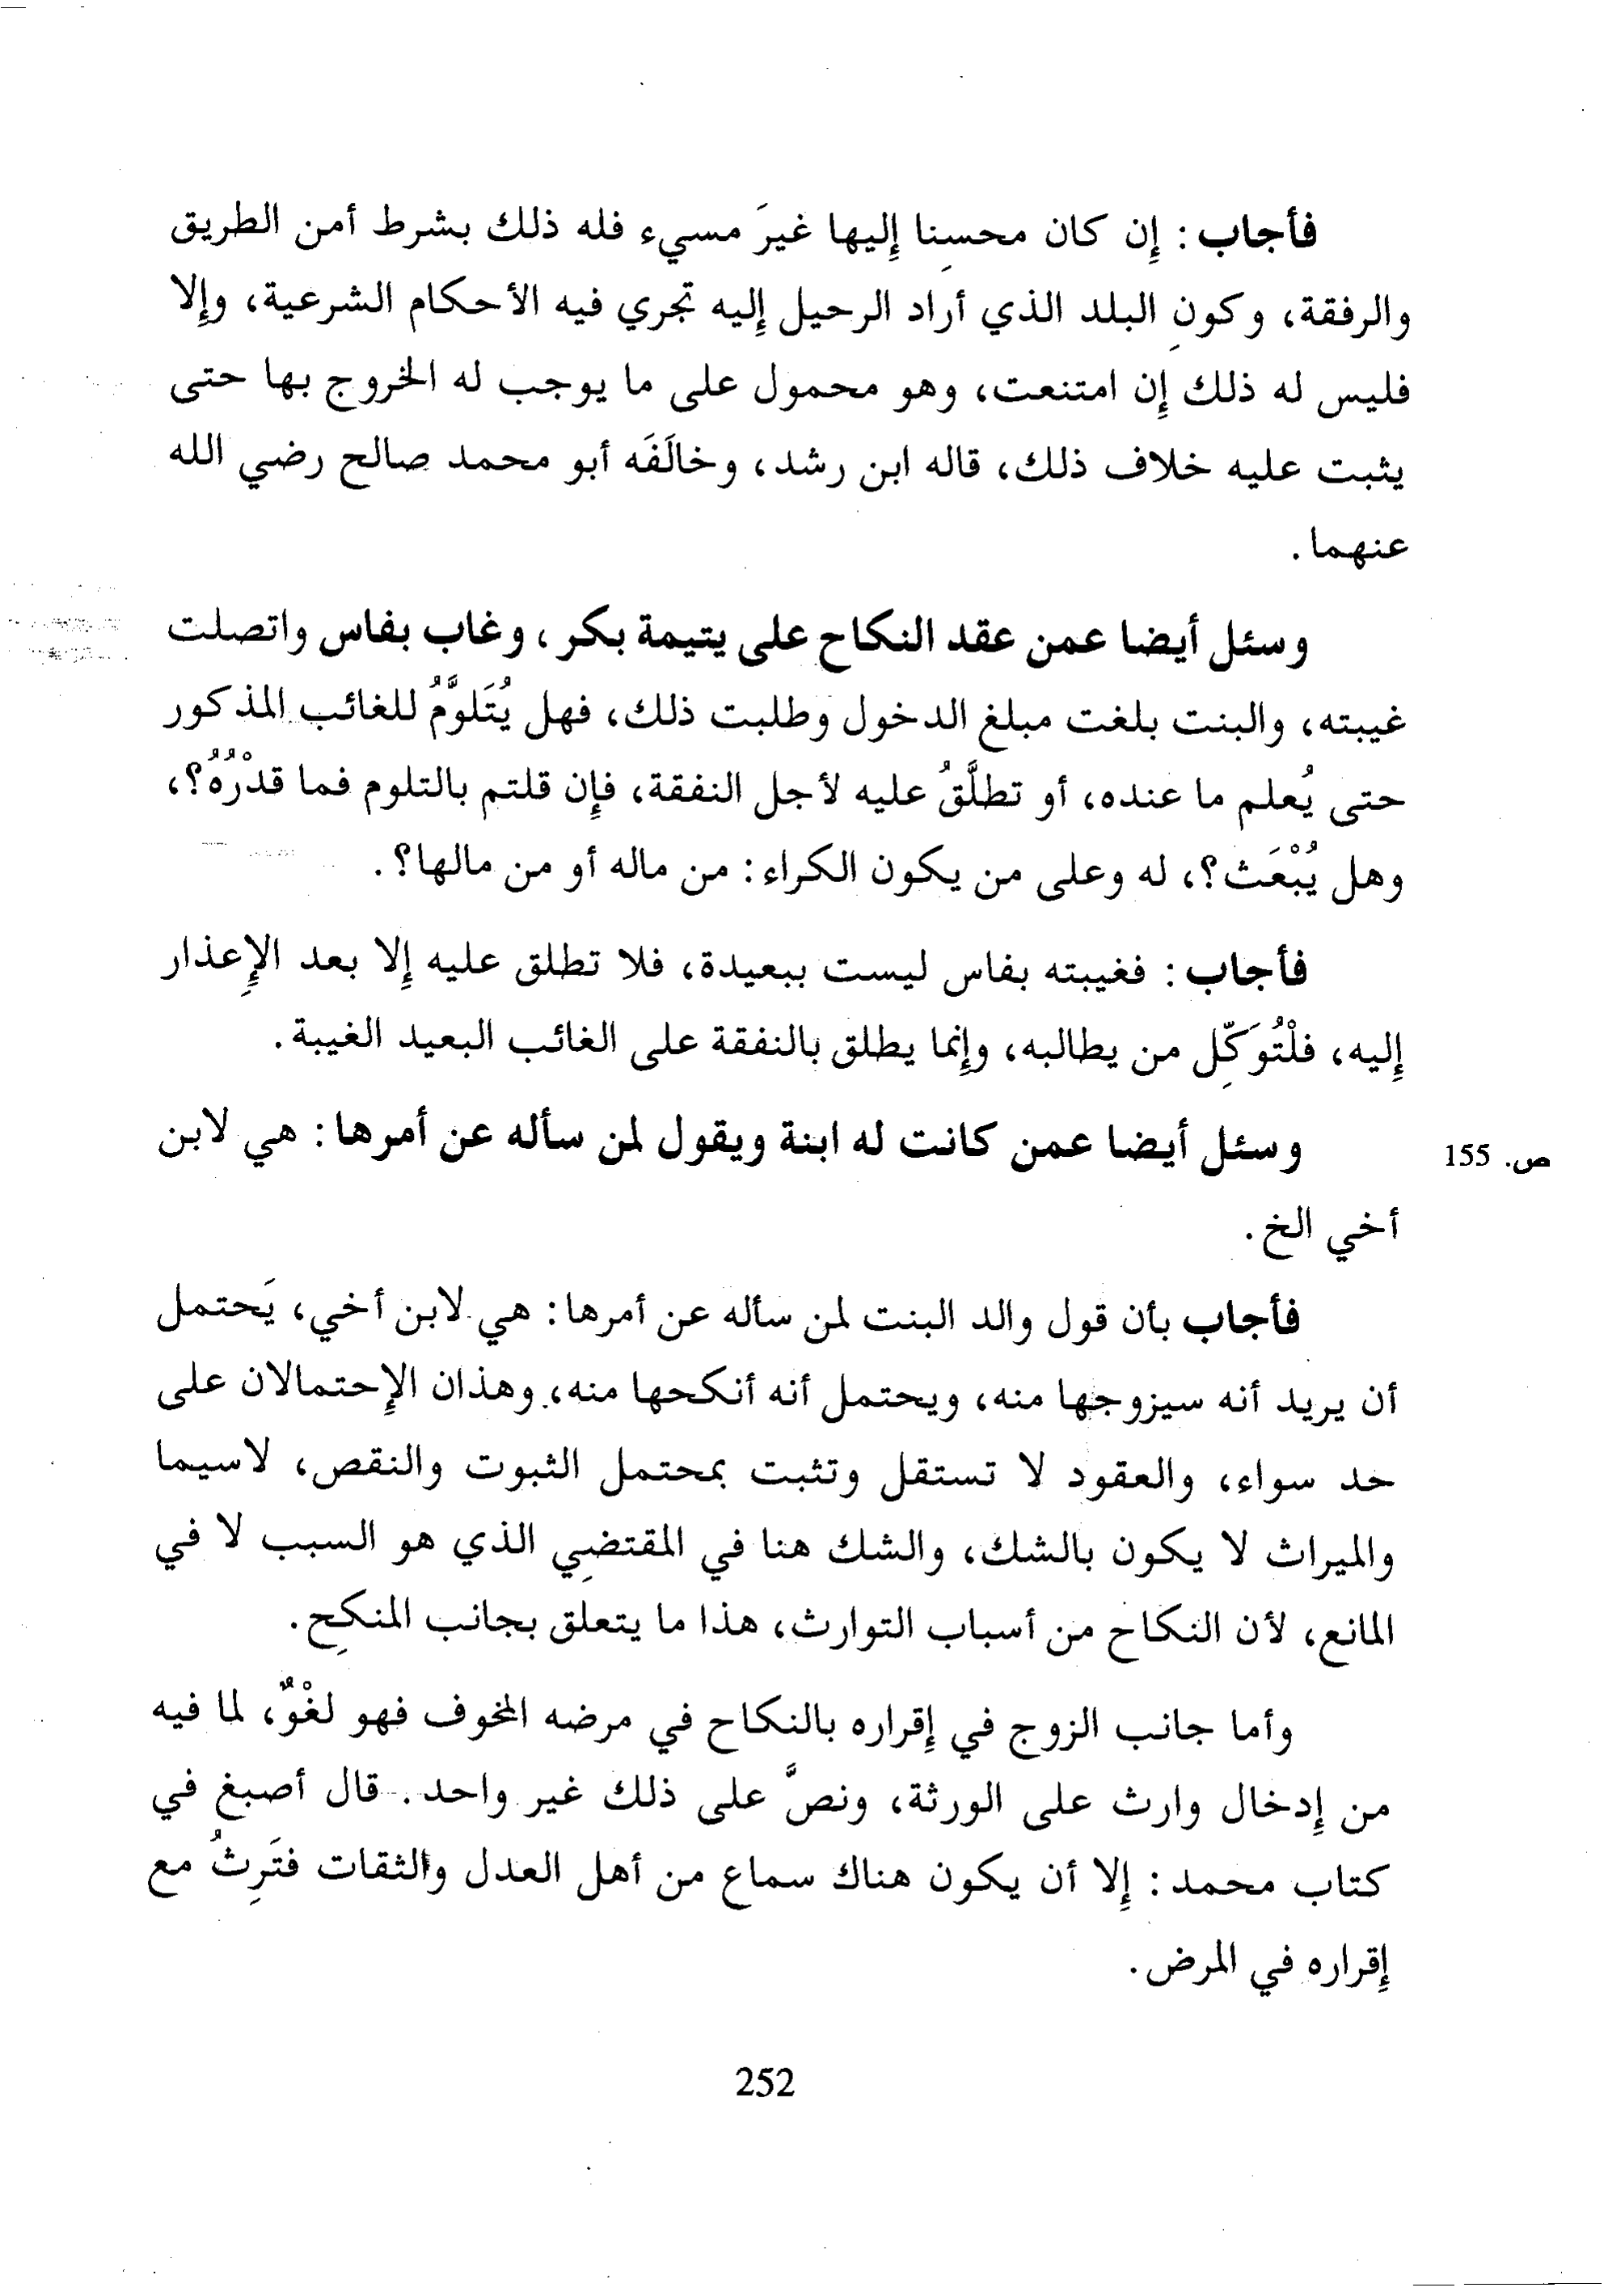 فأجاب : إِن كان محسِنا إِليها غيرَ مسيء فله ذلك بشرط أمن الطريق
والرفقة، وكونِ البلد الذي أراد الرحيل إِليه تجري فيه الأحكام الشرعية، وإِلا
فليس له ذلك إِن امتنعت، وهو محمول على ما يوجب له الخروج بها حتى
يثبت عليه خلاف ذلك، قاله ابن رشد، وخالَفَه أبو محمد صالح رضي الله
عنهما .
وسئل أيضا عمن عقد النكاح على يتيمة بكر، وغاب بفاس واتصلت
غيبته، والبنت بلغت مبلغ الدخول وطلبت ذلك، فهل يُتَلوَّمُ للغائب المذكور
حتى يُعلم ما عنده، أو تطلَّقُ عليه لأجل النفقة، فإِن قلتم بالتلوم فما قدْرُهُ؟،
وهل يُبْعَث؟، له وعلى من يكون الكراء: من ماله أو من مالها؟ .
فأجاب : فغيبته بفاس ليست ببعيدة، فلا تطلق عليه إِلا بعد الإِعذار
إِليه، فلْتُوَكِّل من يطالبه، وإِنما يطلق بالنفقة على الغائب البعيد الغيبة .
وسئل أيضا عمن كانت له ابنة ويقول لمن سأله عن أمرها : هي لابن
ص. 155
أخي الخ .
فأجاب بأن قول والد البنت لمن سأله عن أمرها: هي لابن أخي، يَحتمل
أن يريد أنه سيزوجها منه، ويحتمل أنه أنكحها منه، وهذان الإِحتمالان على
حد سواء، والعقود لا تستقل وتثبت بمحتمل الثبوت والنقص، لاسيما
والميراث لا يكون بالشك، والشك هنا في المقتضِي الذي هو السبب لا في
المانع، لأن النكاح من أسباب التوارث، هذا ما يتعلق بجانب المنكِح.
وأما جانب الزوج في إِقراره بالنكاح في مرضه المخوف فهو لغْوٌ، لما فيه
من إِدخال وارث على الورثة، ونصَّ على ذلك غير واحد . قال أصبغ في
كتاب محمد : إِلا أن يكون هناك سماع من أهل العدل والثقات فتَرِثُ مع
إِقراره في المرض .
252